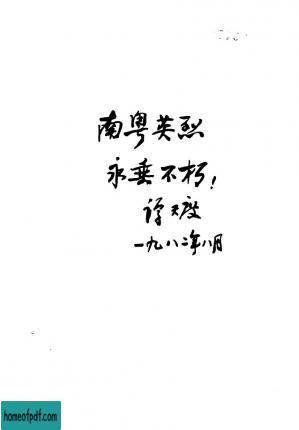 南粤英烈
永垂不朽！
谭天度
一九八二年八月
homeofpdf.com